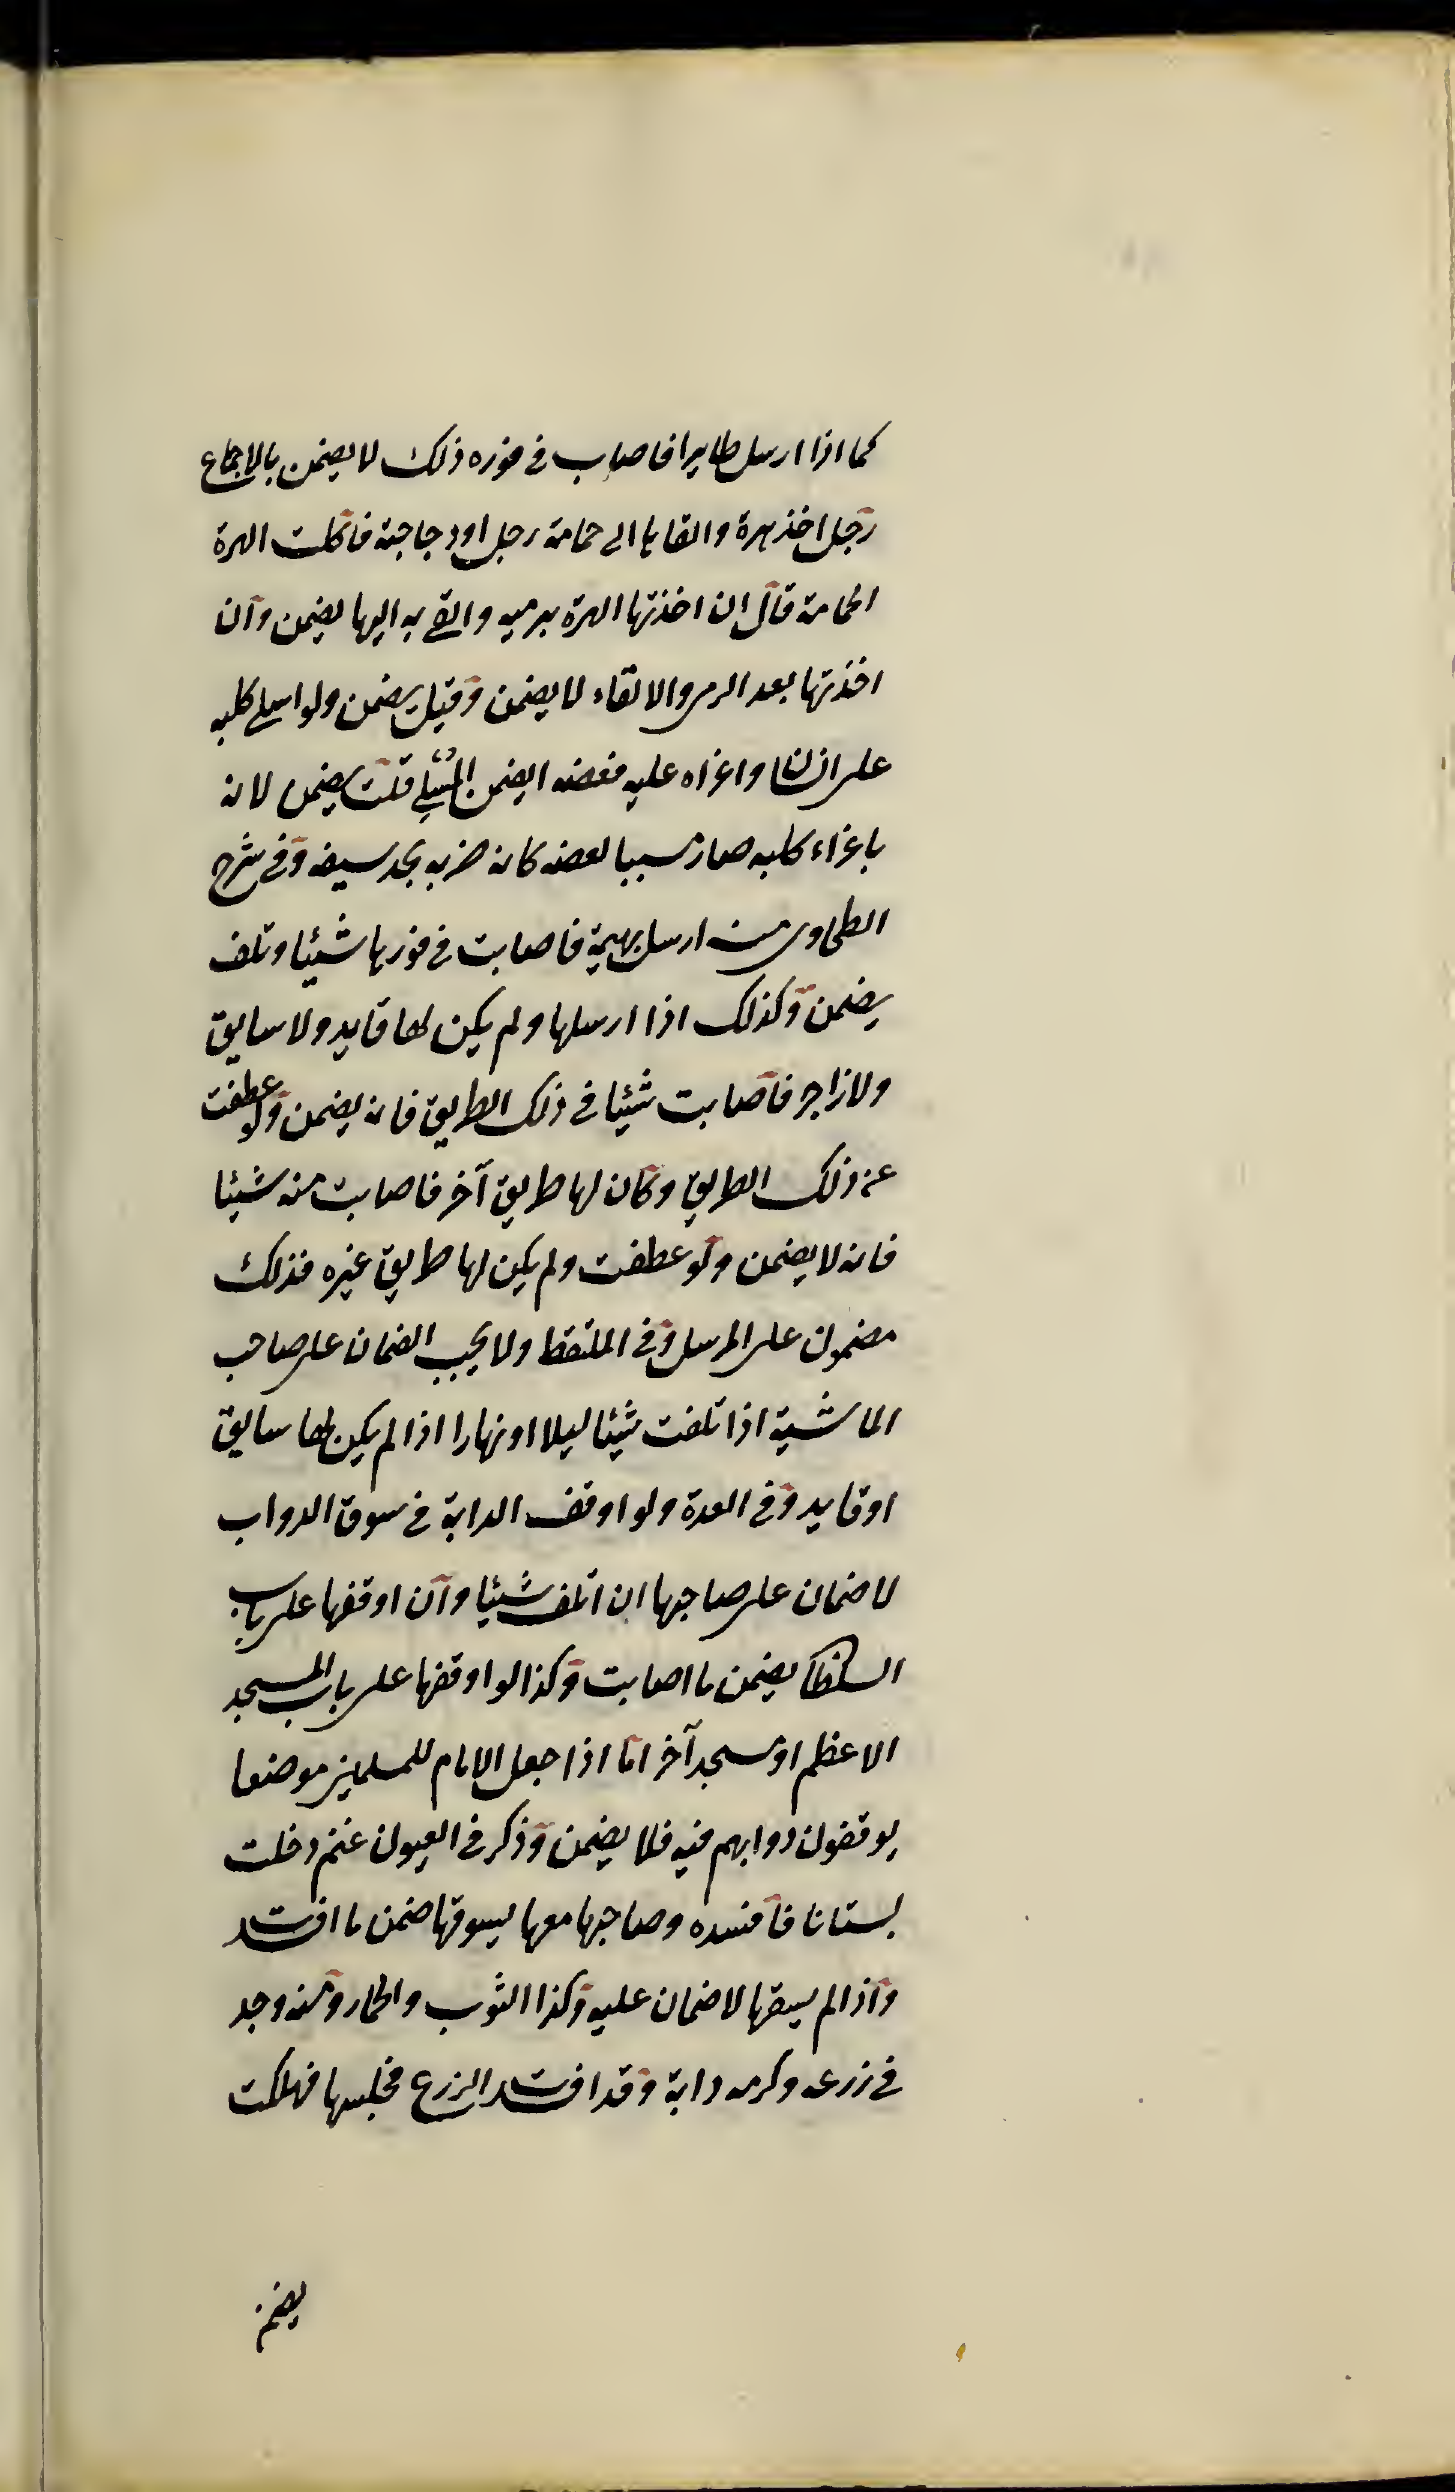 كما اذا ارسل طايرا فاصاب في فوره ذلك لا يضمن بالاجماع
رجل اخذ هرة والقاها الى حمامة رجل او دجاجة فاكلت الهرة
الحمامة قال ان اخذتها الهرة برميه والقي به اليها يضمن وان
اخذتها بعد الرمي والالقاء لا يضمن وقيل يضمن ولو اسلى كلبه
على انسان واغراه عليه فعضه ايضمن المشلي قلت يضمن لانه
باغراء كلبه صار مسببا لعضه كانه ضربه بحد سيفه وفي شرح
الطحاوى من ارسل بهيمة فاصابت في فورها شيئا وتلف
يضمن وكذلك اذا ارسلها ولم يكن لها قايد ولا سايق
ولا زاجر فاصابت شيئا في ذلك الطريق فانه يضمن ولو عطفت
عن ذلك الطريق وكان لها طريق آخر فاصابت منه شيئا
فانه لا يضمن ولو عطفت ولم يكن لها طريق غيره فذلك
مضمون على المرسل وفي الملتقط ولا يجب الضمان على صاحب
الماشية اذا تلفت شيئا ليلا او نهارا اذا لم يكن لها سايق
او قايد وفي العدة ولو اوقف الدابة في سوق الدواب
لا ضمان على صاحبها ان اتلف شيئا وان اوقفها على باب
السلطان يضمن ما اصابت وكذا لو اوقفها على باب المسجد
الاعظم او مسجد آخر اما اذا جعل الامام للمسلمين موضعا
يوقفون دوابهم فيه فلا يضمن وذكر في العيون غنم دخلت
بستانا فافسده وصاحبها معها يسوقها ضمن ما افسد
واذا لم يسقها لا ضمان عليه وكذا الثوب والحمار ومن وجد
في زرعه وكرمه دابة وقد افسد الزرع فحبسها فهلكت
يضمن